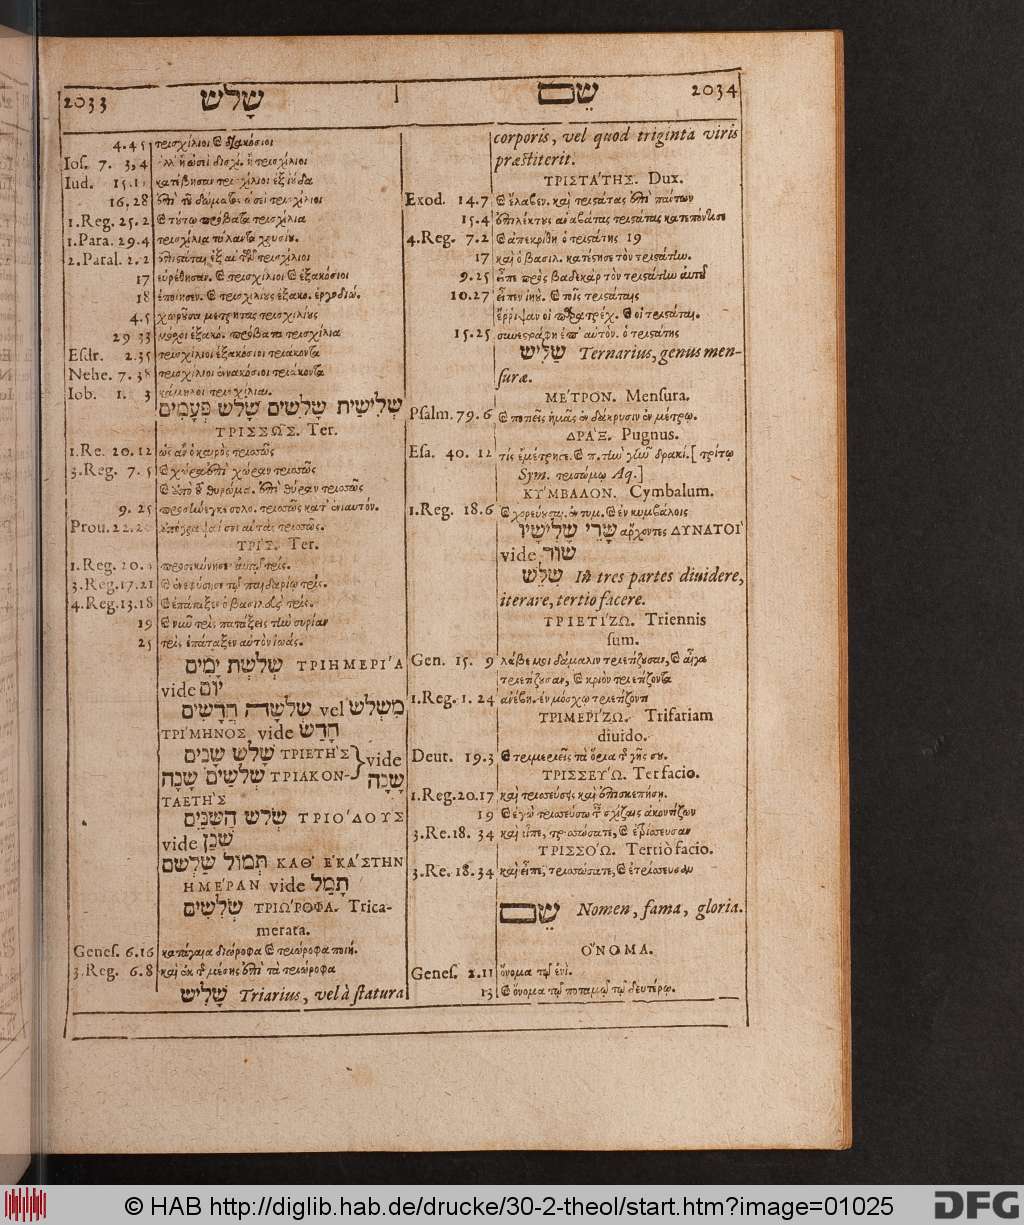 2033 שָׁלֹשׁ
שֵׁם 2034
4.45 τρισχίλιοι ϗ ἑξακόσιοι
Ios. 7. 3,4 ἢ ὡσεὶ δισχ. ἢ τρισχίλιοι
Iud. κατέβησαν τρισχίλιοι ἐξ ἰούδα
16.28 ἐπὶ τοῦ δώματος ὡσεὶ τρισχίλιοι
1.Reg. 25.2 ϗ τούτῳ πρόβατα τρισχίλια
1.Para. 29.4 τρισχίλια τάλαντα χρυσίου.
2.Paral. 2.2
17 εὑρέθησαν. ϗ τρισχίλιοι ϗ ἑξακόσιοι
18 ἐποίησεν. ϗ τρισχιλίους ἑξακο. ἐργοδιώ.
4.5 χωροῦσα μετρητὰς τρισχιλίους
29 33 μόσχοι ἑξακό. πρόβατα τρισχίλια
Esdr. 2.35 τρισχίλιοι ἑξακόσιοι τριάκοντα
Nehe. 7.38 τρισχίλιοι ἐννακόσιοι τριάκοντα
Iob. 1. 3 κάμηλοι τρισχίλιαι.
שְׁלִישִׁית שָׁלִשִׁים שָׁלֹשׁ פְּעָמִים
ΤΡΙΣΣΩ͂Σ. Ter.
1.Re. 20.12 ὡς ἂν ὁ καιρὸς τρισσῶς
3.Reg. 7. 5 ϗ χώρα ἐπὶ χώραν τρισσῶς
ϗ ἀπὸ τοῦ θυρώμα. ἐπὶ θύραν τρισσῶς
9. 25 προσήνεγκε σολο. τρισσῶς κατ' ἐνιαυτόν.
Prou. 22.2 ἀπόγραψαί σοι αὐτὰς τρισσῶς.
ΤΡΙ'Σ. Ter.
1.Reg. 20.4 προσεκύνησε αὐτῷ τρίς.
3.Reg.17.21 ϗ ἐνεφύσησε τῷ παιδαρίῳ τρίς.
4.Reg.13.18 ϗ ἐπάταξεν ὁ βασιλεὺς τρίς.
19 ϗ νῦν τρὶς πατάξεις τὴν συρίαν
25 τρὶς ἐπάταξεν αὐτὸν ἰωάς.
שְׁלֹשֶׁת יָמִים ΤΡΙΗΜΕΡΙ'Α
vide יוֹם
שלשה חֳדָשִׁים vel מִשְׁלֹשׁ
ΤΡΙ'ΜΗΝΟΣ, vide חָדַשׁ
שָׁלֹשׁ שָׁנִים ΤΡΙΕΤΗ'Σ } vide
שְׁלֹשִׁים שָׁנָה ΤΡΙΑΚΟΝ- שָׁנָה
ΤΑΕΤΗ'Σ
שְׁלֹשׁ הַשִּׁנַּיִם ΤΡΙΟ'ΔΟΥΣ
vide שָׁנַן
תְּמוֹל שִׁלְשֹׁם ΚΑΘ' ΕΚΑ'ΣΤΗΝ
ΗΜΕ'ΡΑΝ vide תָּמַל
שְׁלִשִׁים ΤΡΙΩ'ΡΟΦΑ. Trica-
merata.
Genes. 6.16 κατάγαια διώροφα ϗ τριώροφα ποιή.
3.Reg. 6.8 καὶ ἐκ τῆς μέσης ἐπὶ τὰ τριώροφα
שָׁלִישׁ Triarius, vel à statura
corporis, vel quod triginta viris
præstiterit.
ΤΡΙΣΤΑ'ΤΗΣ. Dux.
Exod. 14.7 ϗ ἔλαβεν. καὶ τριστάτας ἐπὶ πάντων
15.4 ἐπιλέκτους ἀναβάτας τριστάτας κατεπόντισε
4.Reg. 7.2 ϗ ἀπεκρίθη ὁ τριστάτης 19
17 καὶ ὁ βασιλ. κατέστησε τὸν τριστάτην.
9.25 εἶπε πρὸς βαδεκὰρ τὸν τριστάτην αὐτοῦ
10.27 εἶπεν ἰηού. ϗ τοῖς τριστάταις
ἔρριψαν οἱ παρατρέχ. ϗ οἱ τριστάται.
15.25 συνεστράφη ἐπ' αὐτὸν. ὁ τριστάτης
שָׁלִישׁ Ternarius, genus men-
suræ.
ΜΕ'ΤΡΟΝ. Mensura.
Psalm. 79.6 ϗ ποτιεῖς ἡμᾶς ἐν δάκρυσιν ἐν μέτρῳ.
ΔΡΑ'Ξ. Pugnus.
Esa. 40. 12 τίς ἐμέτρησε. ϗ π. τὴν γῆν δρακί. [ τρίτῳ
Sym. τρισσώμῳ Aq.]
ΚΥ'ΜΒΑΛΟΝ. Cymbalum.
1.Reg. 18.6 ϗ χορεύουσαι. ἐν τυμ. ϗ ἐν κυμβάλοις
שָׂרֵי שָׁלִישָׁיו ἄρχοντες ΔΥΝΑΤΟΙ'
vide שׂוּר
שִׁלֵּשׁ In tres partes diuidere,
iterare, tertio facere.
ΤΡΙΕΤΙ'ΖΩ. Triennis
sum.
Gen. 15. 9 λάβε μοι δάμαλιν τριετίζουσαν, ϗ αἶγα
τριετίζουσαν, ϗ κριὸν τριετίζοντα
1.Reg. 1. 24 ἀνέβη. ἐν μόσχῳ τριετίζοντι
ΤΡΙΜΕΡΙ'ΖΩ. Trifariam
diuido.
Deut. 19.3 ϗ τριμεριεῖς τὰ ὅρια τῆς γῆς σου.
ΤΡΙΣΣΕΥ'Ω. Ter facio.
1.Reg.20.17 καὶ τρισσεύσεις καὶ ἐπισκεπήση.
19 ϗ ἐγὼ τρισσεύσω τῆς σχίζαις ἀκοντίζων
3.Re.18. 34 καὶ εἶπε, τρισσώσατε, ϗ ἐτρίσσευσαν
ΤΡΙΣΣΟ'Ω. Tertiò facio.
3.Re. 18.34 καὶ εἶπε, τρισσώσατε, ϗ ἐτρίσσευσαν
שֵׁם Nomen, fama, gloria.
Ο'ΝΟΜΑ.
Genes. 2.11 ὄνομα τῷ ἑνί.
13 ϗ ὄνομα τῷ ποταμῷ τῷ δευτέρῳ.
© HAB http://diglib.hab.de/drucke/30-2-theol/start.htm?image=01025
DFG